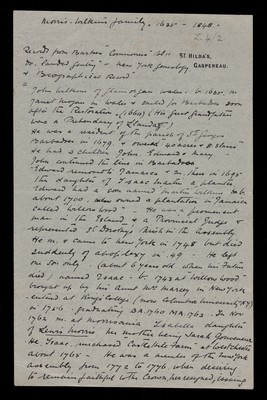 Morris-Wilkins family. 1635 - 1848.
Z 4/2
Records from Burke's "Commoners" etc
ST HILDA'S,
GASPEREAU.
do. Landed Gentry - New York Genealogy
& Biographical Record
John Wilkins of Glamorgan Wales. b. 1635. m
Janet Morgan in Wales & sailed for Barbados soon
after the Restoration. (1660) (His great grandfather
was a Prebendary of Llandaff)
He was a resident of the parish of St George
Barbados in 1679. & owned acres & slaves
He had 2 children John, Edward & Mary
John continued the line in Barbados
Edward removed to Jamaica & m. there in 1695
the daughter of Isaac Martin a planter
Edward had a son named Martin Wilkins b.
about 1700, who owned a plantation in Jamaica
called "Willowswood" - He was a prominent
man in the Island & a Provincial Judge &
represented St Dorothy's Parish in the Assembly
He m. & came to New York in 1748 but died
suddenly of apoplexy in 49 - He left
one son only. (about 6 years old when his father
died) named Isaac - b. 1742 at Willowswood
brought up by his Aunt Mrs Macey in New York
- entered at King's College (now Columbia University NY)
in 1756. graduating BA 1760 MA 1763. In Nov
1762 m. at Morrisania Isabella daughter
of Lewis Morris her mother being Sarah Gouverneur
He, Isaac, purchased Castle Hill farm at Westchester
about 1765 - He was a member of the New York
Assembly from 1772 to 1776, when desiring
to remain faithful to the Crown he resigned, issuing